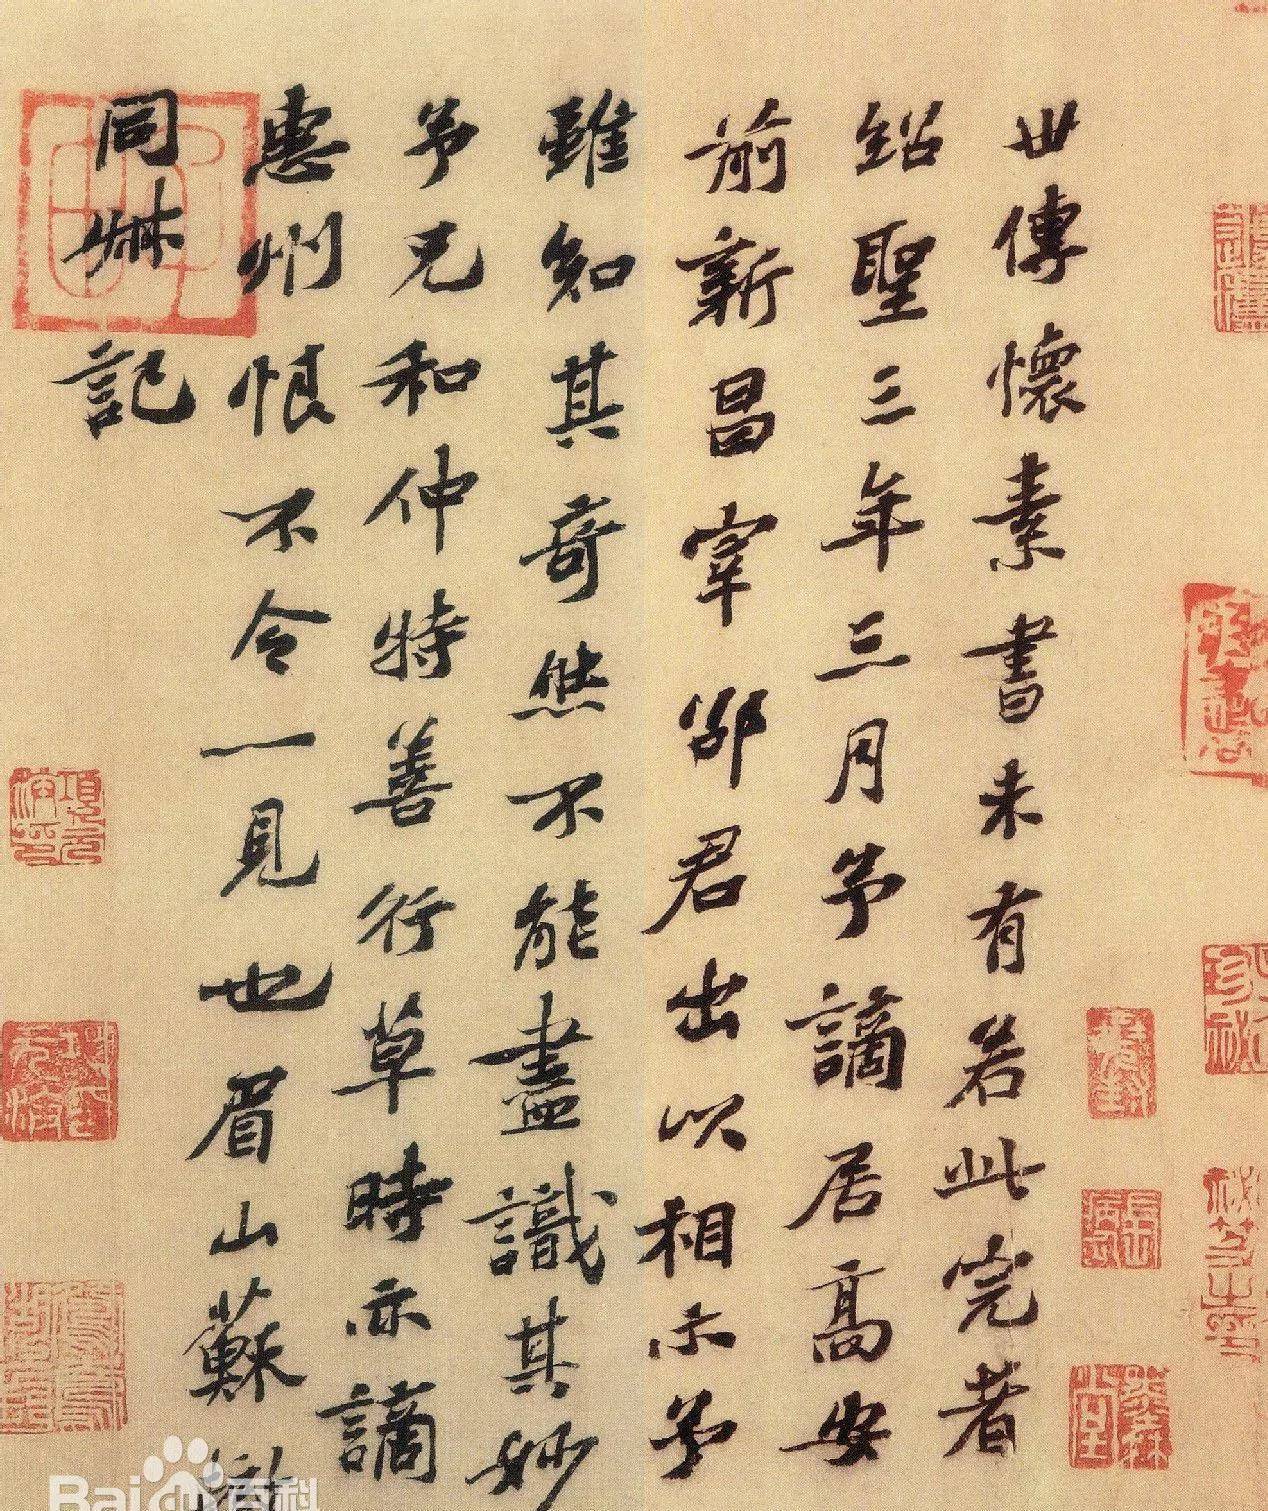 世傳懷素書未有若此完者
紹聖三年三月予謫居高安
前新昌宰邵君出以相示予
雖知其奇然不能盡識其妙
予兄和仲特善行草時亦謫
惠州恨不令一見也眉山蘇轍
同叔記
Bai 百科